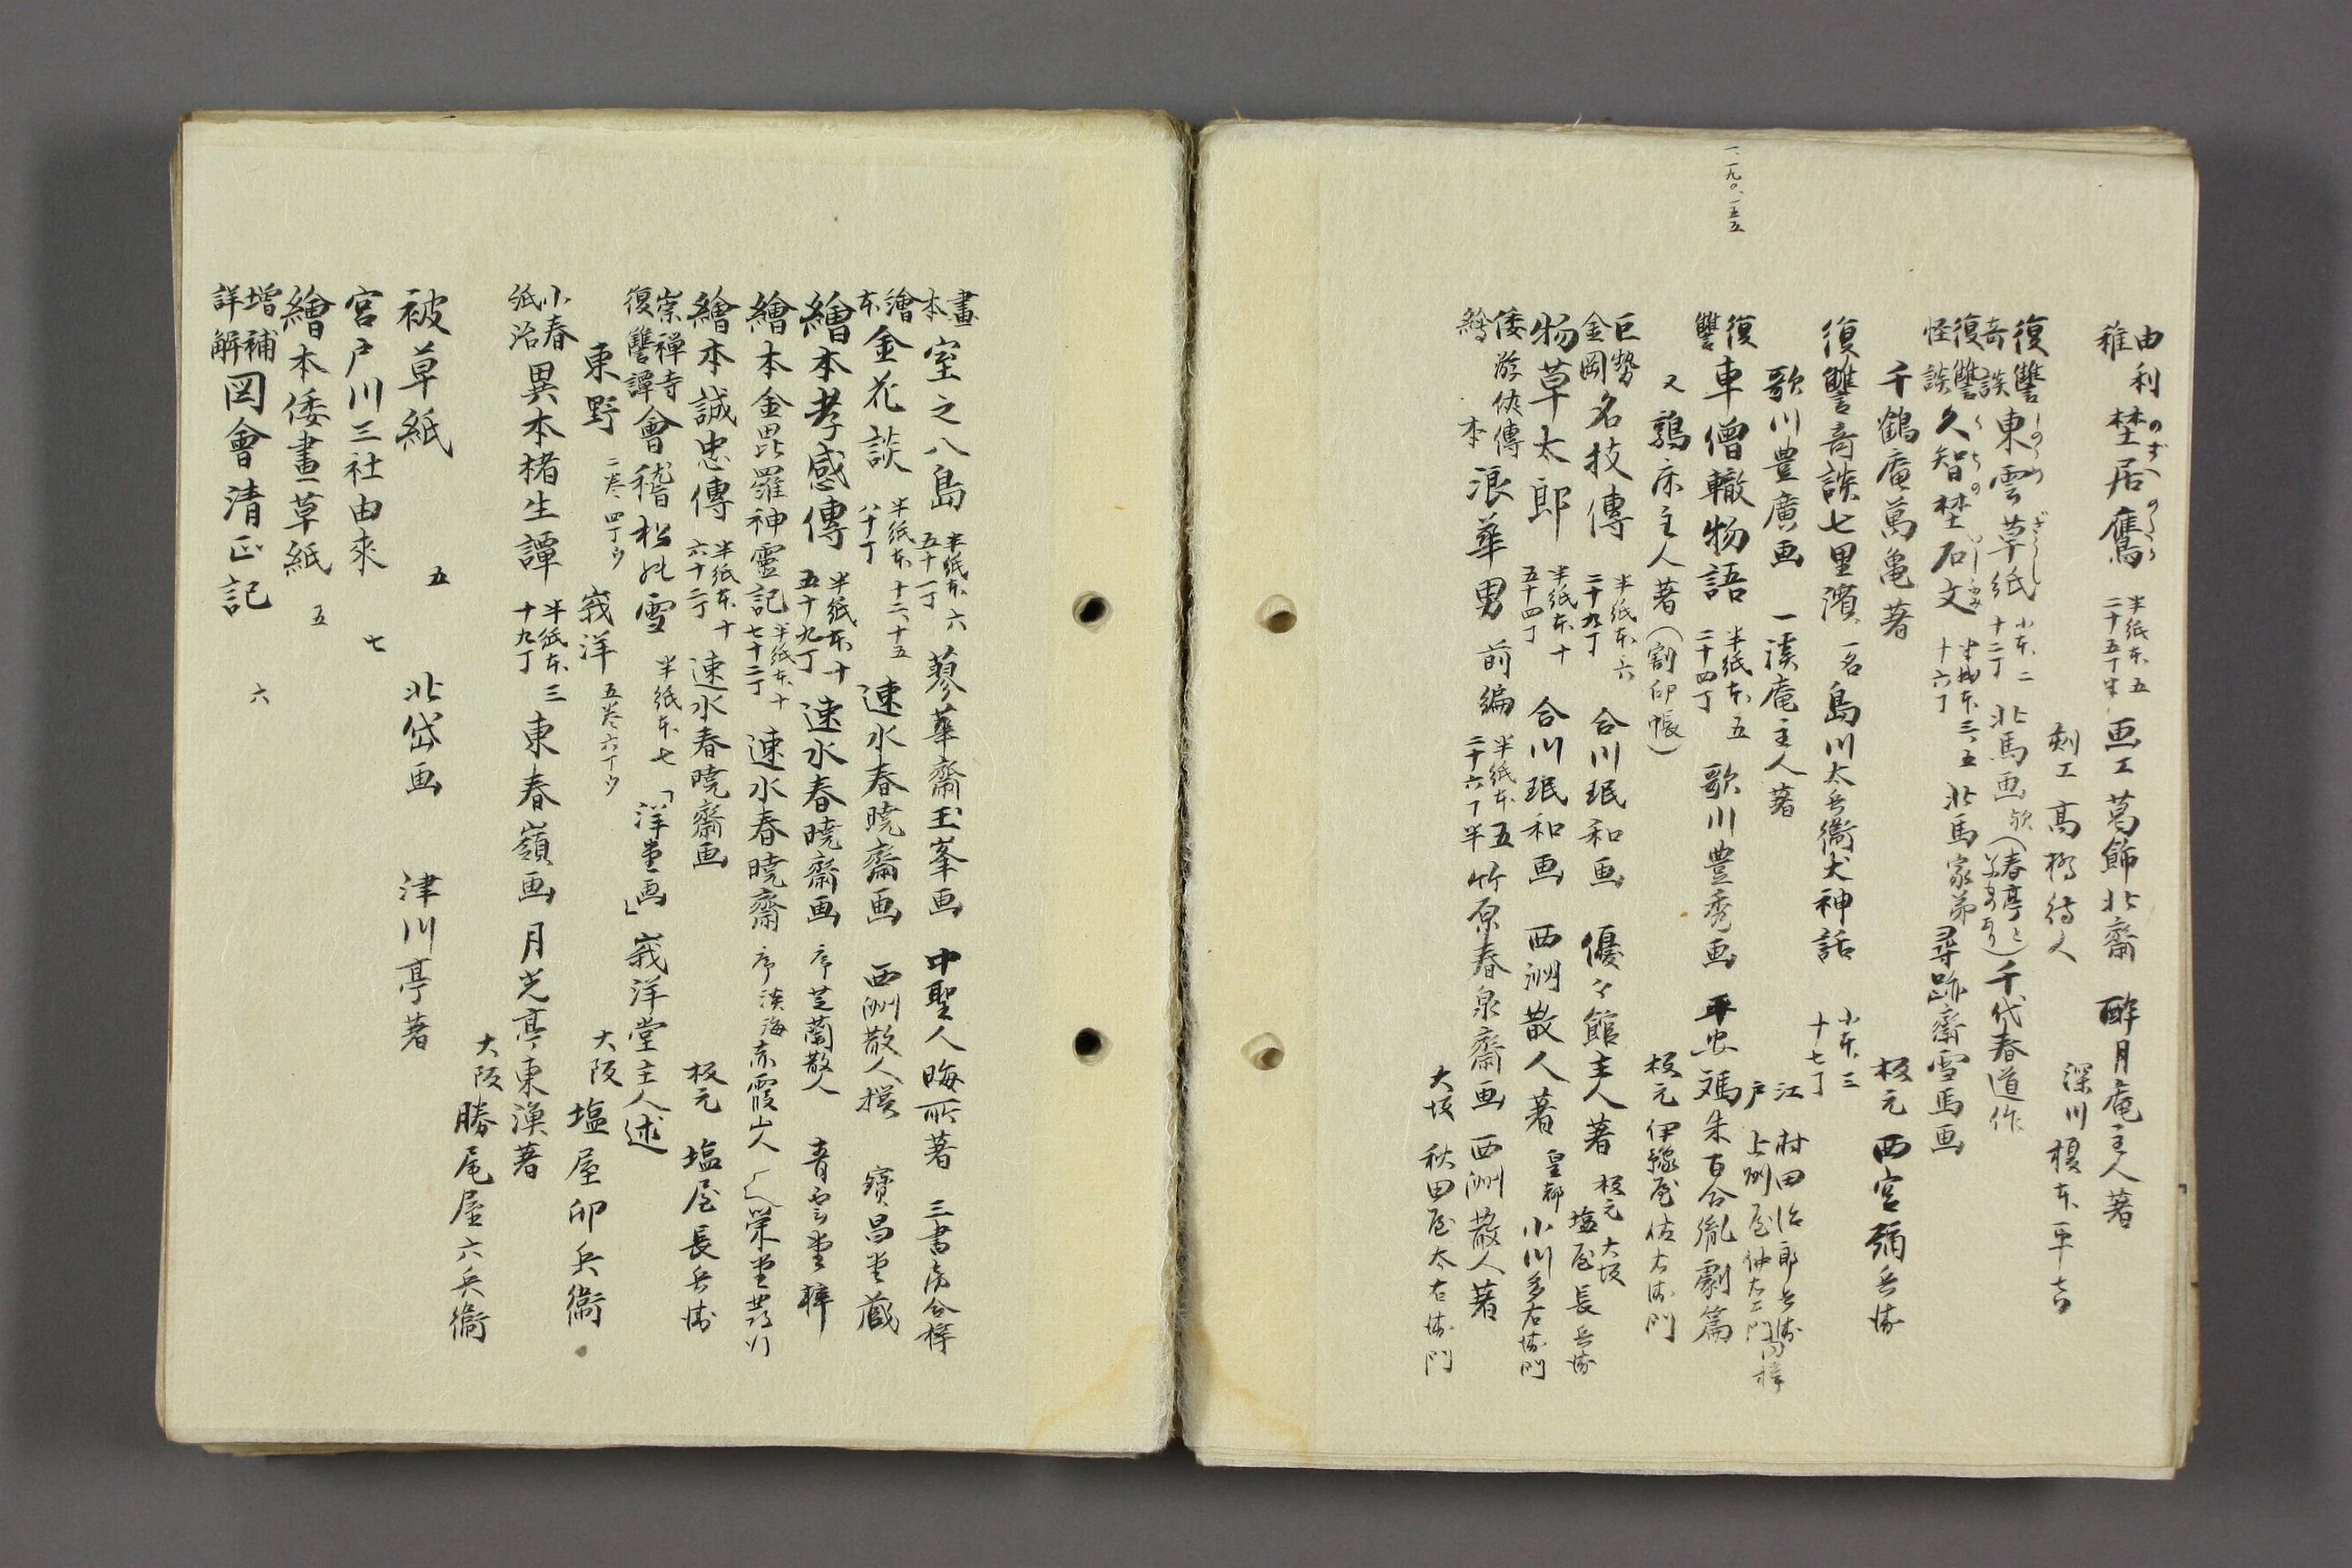 由利稚 埜居鷹 半紙本五 二十五丁半 画工葛飾北齋 醉月庵主人著
のずへのたか
剞工髙橋待人 深川榎本平吉
復讐奇談 東雲草紙 小本二 十二丁 北馬画 欤(春亭と) 千代春道作
しのゝめざうし
復讐怪談 久智埜石文 半紙本三、五 十六丁 北馬家弟尋跡齋雪馬画
くちのいしぶみ
千鶴庵萬亀著 板元 西宮彌兵衛
復讐竒談七里濱 一名島川太兵衞犬神話 小本三 十七丁
歌川豊廣画 一溪庵主人著 江戸 村田治郎兵衛 上州屋仲右エ門 同梓
一、一九〇、一五五
復讐 車僧轍物語 半紙本五 二十四丁 歌川豊秀画 朱百合亂劇篇
又鶉床主人著(割印帳) 板元伊豫屋佐右衛門
巨勢金岡 名技傳 半紙本六 二十九丁 合川珉和画 優々館主人著 板元 大坂 塩屋長兵衛
物草太郎 半紙本十 五十四丁 合川珉和画 西洲散人著 皇都 小川多右衛門
倭游侠傳繪本 浪華男 前編 半紙本五 二十六丁半 竹原春泉齋画 西洲散人著
大坂 秋田屋太右衛門
畫本 室之八島 半紙本六 五十一丁 蓼華齋玉峯画 中聖人晦所著 三書房合梓
繪本 金花談 半紙本十二、十五 八十丁 速水春暁齋画 西洲散人撰 寳昌堂蔵
繪本孝感傳 半紙本十 五十九丁 速水春暁齋画 序芝蘭散人 青雲堂梓
繪本金毘羅神靈記 半紙本十 七十二丁 速水春暁齋 序淡海赤霞山人
繪本誠忠傳 半紙本十 六十二丁 速水春暁齋画 板元 塩屋長兵衛
崇禅寺復讐譚 會稽松の雪 半紙本七 「洋堂画」 峩洋堂主人述
東野 二巻四丁ウ 峩洋 五巻六丁ウ 大阪 塩屋卯兵衞
小春紙治 異本楮生譚 半紙本三 十九丁 東春嶺画 月光亭東漁著
大阪 勝尾屋六兵衞
被草紙 五 北岱画 津川亭著
宮戸川三社由来 七
繪本倭畫草紙 五
増補詳解 図會清正記 六